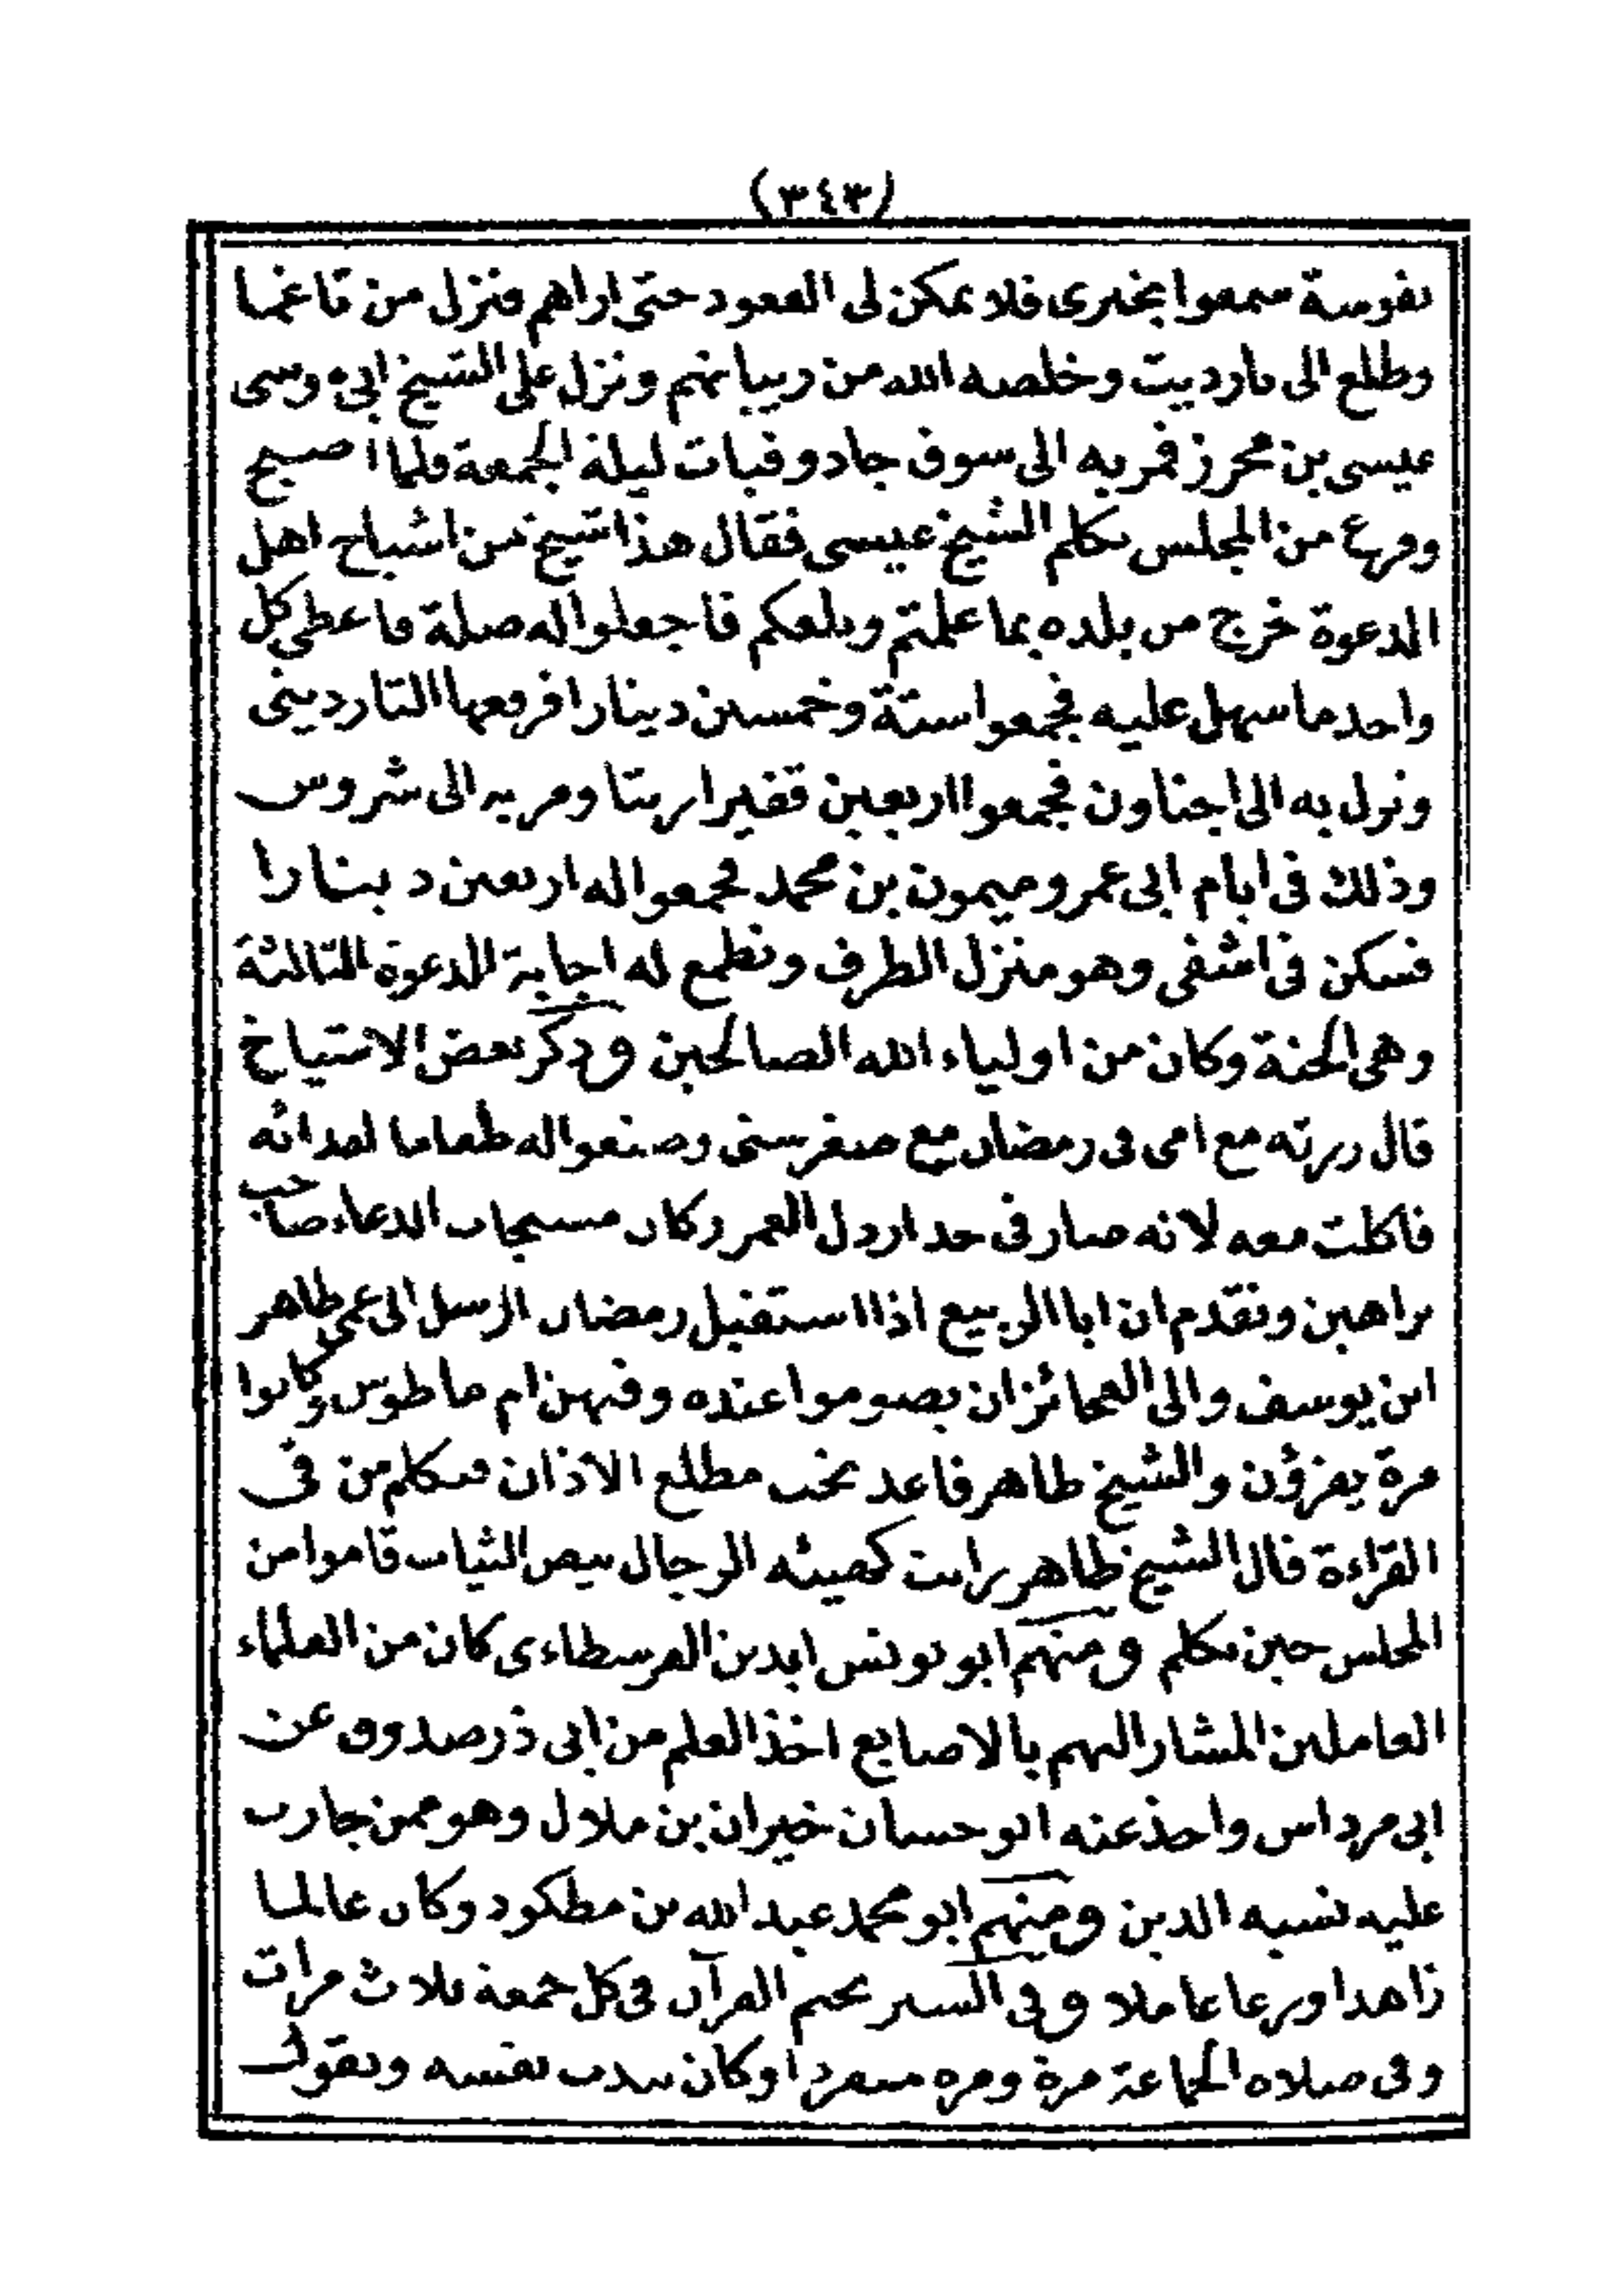 (٣٤٣)
نفوسة سمعوا بخبرى فلا يمكن لى القعود حتى اراهم فنزل من تاغما
وطلع الى تارديت وخلصه الله من ديبانهم ونزل على الشيخ ابى موسى
عيسى بن محرز فمر به الى سوق جادو فبات ليلة الجمعة فلما اصبح
وفرغ من المجلس تكلم الشيخ عيسى فقال هذا شيخ من اشياخ اهل
الدعوة خرج من بلده بما علمتم وبلغكم فاجعلوا له صلة فاعطى كل
واحد ما سهل عليه فجمعوا ستة وخمسين دينارا فرفعها التارديتى
ونزل به الى اجناون فجمعوا اربعين قفيزا زيتا ومر به الى شروس
وذلك فى ايام ابى عمرو ميمون بن محمد فجمعوا له اربعين دينارا
فسكن فى اشفى وهو منزل الطرف ونطمع له اجابة الدعوة الثالثة
وهى الجنة وكان من اولياء الله الصالحين وذكر بعض الاشياخ
قال زرته مع امى فى رمضان مع صغر سنى وصنعوا له طعاما لغدائه
فاكلت معه لانه صار فى حد ارذل العمر وكان مستجاب الدعاء صاحب
براهين وتقدم ان ابا الربيع اذا استقبل رمضان ارسل الى عمى طاهر
ابن يوسف والى العجائز ان يصوموا عنده وفيهن ام ماطوس وكانوا
مرة يقرؤن والشيخ طاهر قاعد تحت مطلع الاذان فتكلم من فى
القراءة قال الشيخ طاهر رايت كهيئه الرجال بيض الثياب قاموا من
المجلس حين تكلم ومنهم ابو يونس ابدين الفرسطاءى كان من العلماء
العاملين المشار اليهم بالاصابع اخذ العلم من ابى ذر صدوق عن
ابى مرداس واخذ عنه ابو حسان خيران بن ملال وهو ممن جازت
عليه نسبه الدين ومنهم ابو محمد عبد الله بن مطكود وكان عالما
زاهدا ورعا عاملا وفى السير يختم القرآن فى كل جمعة ثلاث مرات
وفى صلاه الجماعة مرة ومره منفردا وكان يندب نفسه ويقول